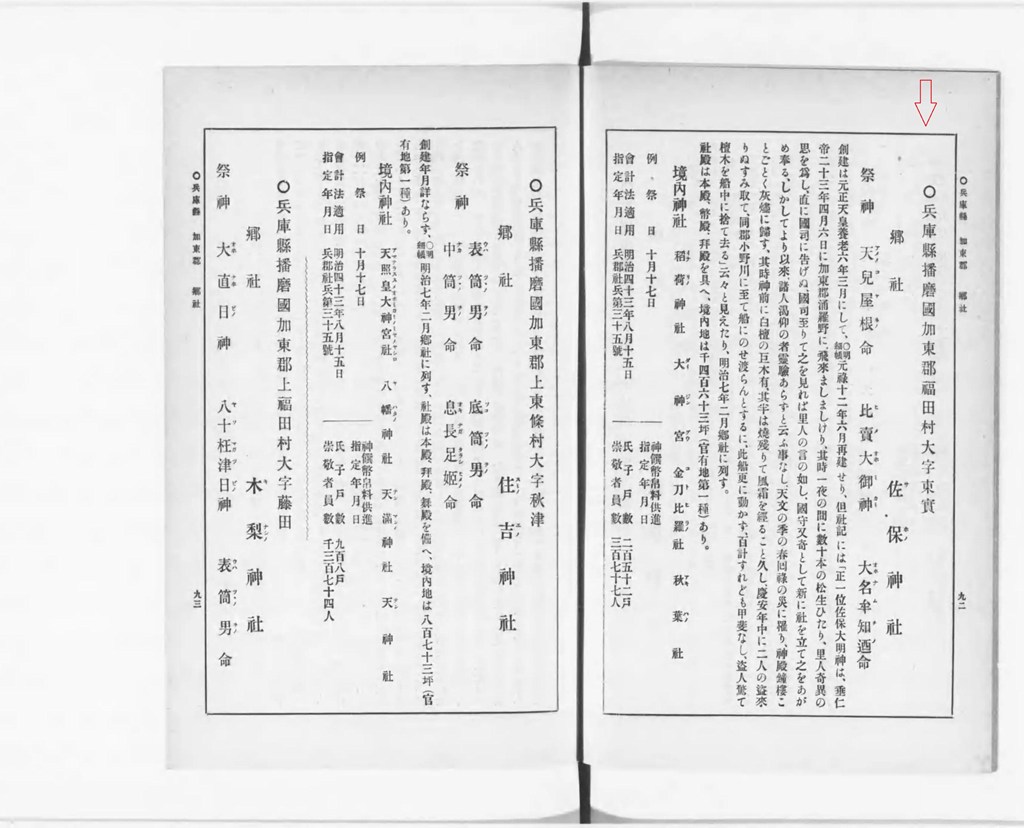 ○兵庫縣 加東郡 鄕社
九二
○兵庫縣播磨國加東郡福田村大字東實
鄕社 佐保神社
祭神 天兒屋根命 比賣大御神 大名牟知迺命
創建は元正天皇養老六年三月にして、○明細帳元祿十二年六月再建せり、但社記には「正一位佐保大明神は、垂仁
帝二十三年四月六日に加東郡涌羅野に、飛來ましましけり、其時一夜の間に數十本の松生ひたり、里人奇異の
思を爲し、直に國司に告げぬ、國司至りて之を見れば里人の言の如し、國守又奇として新に社を立て之をあが
め奉る、しかしてより以來、諸人渴仰の者靈驗あらずと云ふ事なし、天文の季の春回祿の災に罹り、神殿鐘樓こ
とごとく灰燼に歸す、其時神前に白檀の巨木有、其半は燒殘りて風霜を經ること久し、慶安年中に二人の盜來
りぬすみ取て、同郡小野川に至て船にのせ渡らんとするに、此船更に動かず、百計すれども甲斐なし、盜人驚て
檀木を船中に捨て去る」云々と見えたり、明治七年二月鄕社に列す。
社殿は本殿、幣殿、拜殿を具へ、境內地は千四百六十三坪(官有地第一種)あり。
境內神社 稻荷神社 大神宮 金刀比羅社 秋葉社
例祭日 十月十七日
神饌幣帛料供進指定年月日
會計法適用指定年月日 明治四十三年八月十五日兵郡社兵第三十五號
氏子戶數 二百五十二戶
崇敬者員數 三百七十七人
○兵庫縣播磨國加東郡上東條村大字秋津
鄕社 住吉神社
祭神 表筒男命 底筒男命
中筒男命 息長足姬命
創建年月詳ならず、○明細帳明治七年二月鄕社に列す、社殿は本殿、拜殿、舞殿を備へ、境內地は八百七十三坪(官
有地第一種)あり。
境內神社 天照皇大神宮社 八幡神社 天滿神社 天神社
例祭日 十月十七日
神饌幣帛料供進指定年月日
會計法適用指定年月日 明治四十三年八月十五日兵郡社兵第三十五號
氏子戶數 九百八戶
崇敬者員數 千三百七十四人
○兵庫縣播磨國加東郡上福田村大字藤田
鄕社 木梨神社
祭神 大直日神 八十枉津日神 表筒男命
○兵庫縣 加東郡 鄕社
九三